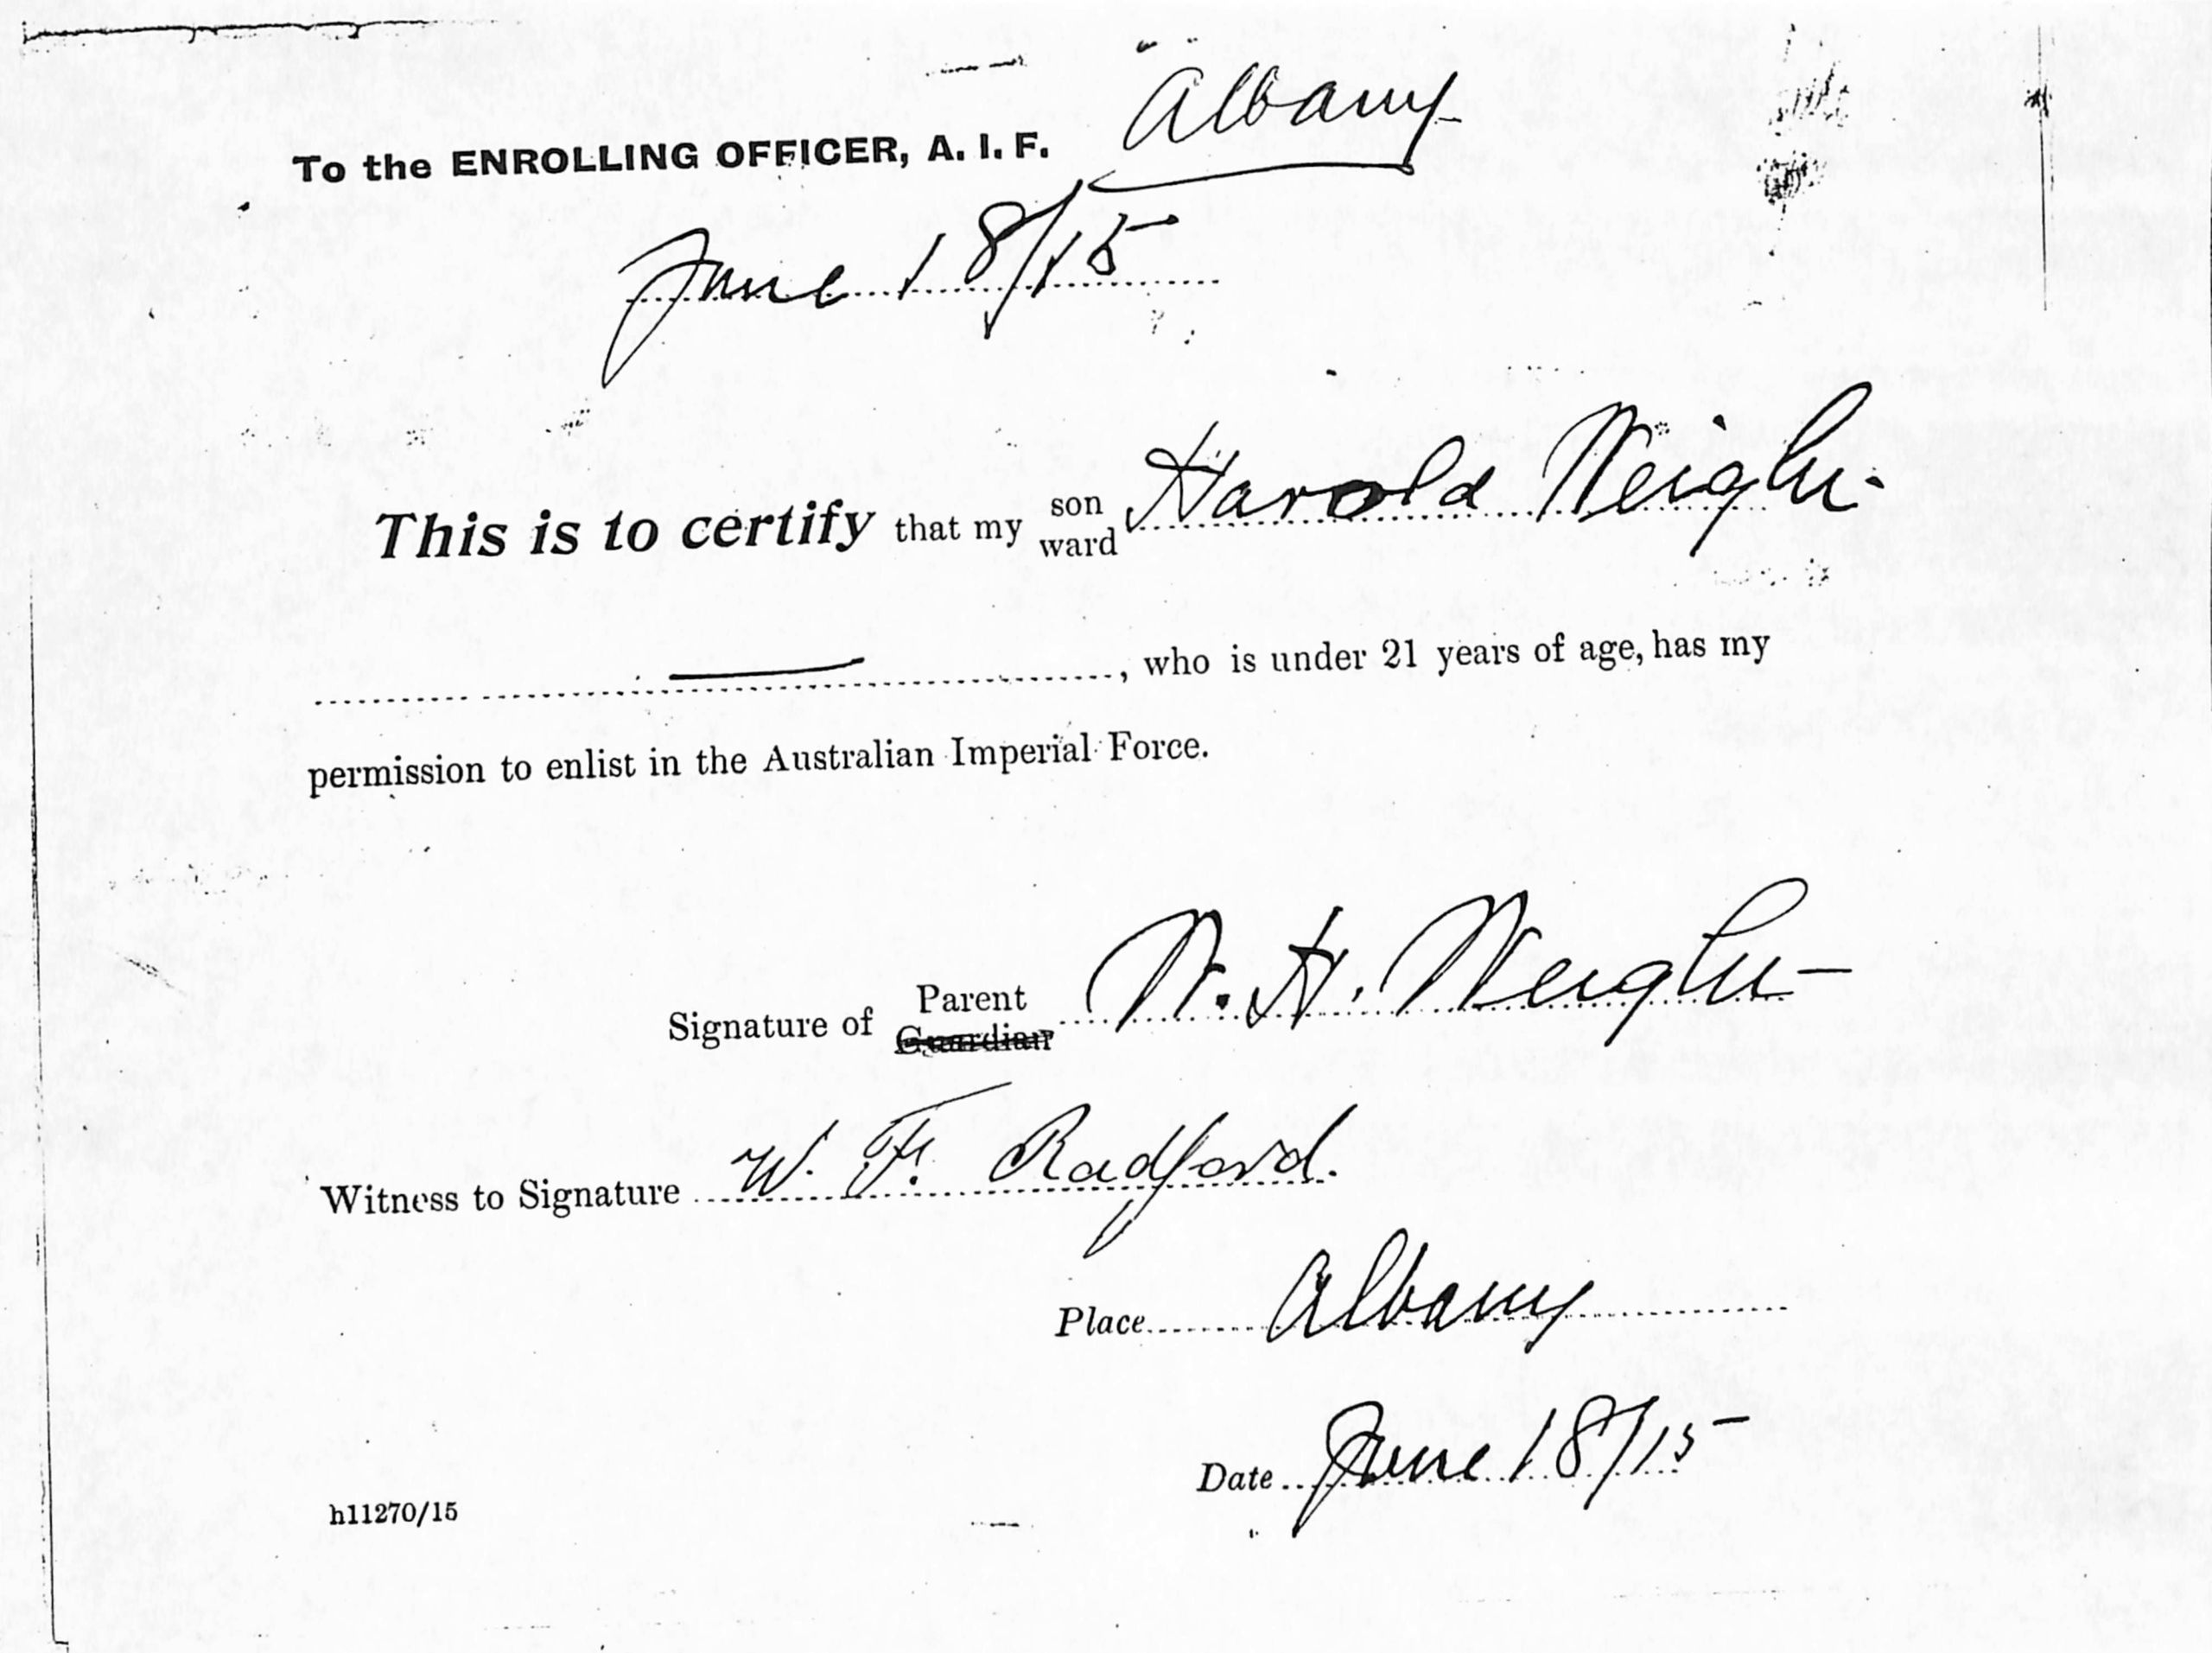 To the ENROLLING OFFICER, A. I. F. Albany
June 18/15
This is to certify that my son ward Harold
, who is under 21 years of age, has my
permission to enlist in the Australian Imperial Force.
Signature of Parent Guardian H.
Witness to Signature W. F. Radford.
Place Albany
Date June 18/15
h11270/15